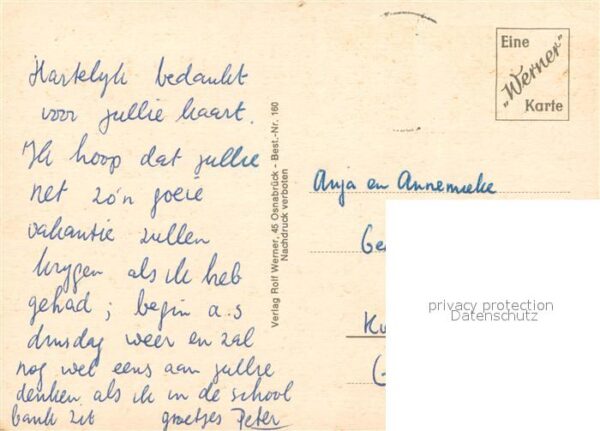 Hartelyk bedankt
voor jullie kaart.
Ik hoop dat jullie
net zo'n goeie
vakantie zullen
krygen als ik heb
gehad; begin a.s
dinsdag weer en zal
nog wel eens aan jullie
denken als ik in de school
bank zit groetjes Peter
Verlag Rolf Werner, 45 Osnabrück - Best.-Nr. 160
Nachdruck verboten
Eine
„Werner“
Karte
Anja en Annemieke
Ge
privacy protection
Datenschutz